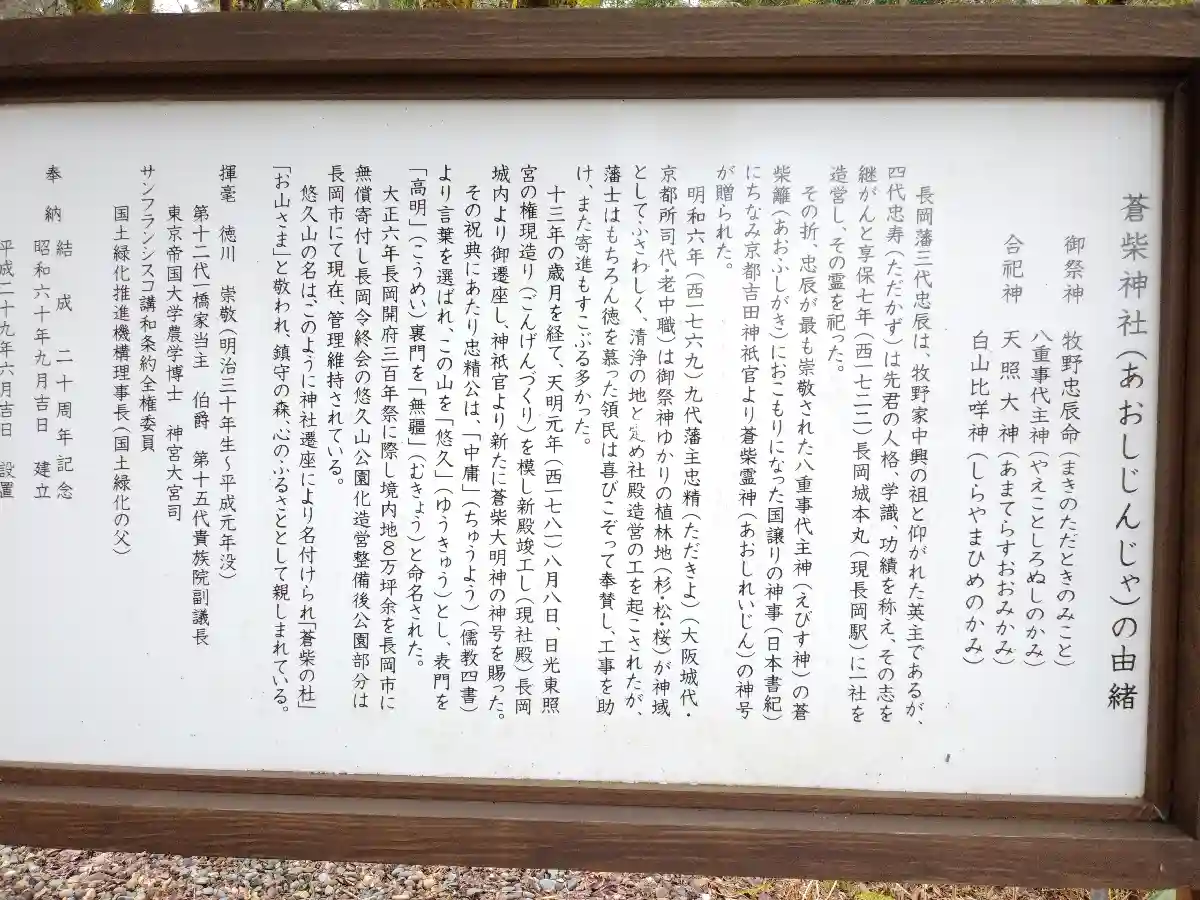 蒼柴神社(あおしじんじゃ)の由緒
御祭神　牧野忠辰命(まきのただときのみこと)
八重事代主神(やえことしろぬしのかみ)
合祀神　天照大神(あまてらすおおみかみ)
白山比咩神(しらやまひめのかみ)
長岡藩三代忠辰は、牧野家中興の祖と仰がれた英主であるが、
四代忠寿(ただかず)は先君の人格、学識、功績を称え、その志を
継がんと享保七年(西一七二二)長岡城本丸(現長岡駅)に一社を
造営し、その霊を祀った。
その折、忠辰が最も崇敬された八重事代主神(えびす神)の蒼
柴籬(あおふしがき)におこもりになった国譲りの神事(日本書紀)
にちなみ京都吉田神祇官より蒼柴霊神(あおしれいじん)の神号
が贈られた。
明和六年(西一七六九)九代藩主忠精(ただきよ)(大阪城代・
京都所司代・老中職)は御祭神ゆかりの植林地(杉・松・桜)が神域
としてふさわしく、清浄の地と定め社殿造営の工を起こされたが、
藩士はもちろん徳を慕った領民は喜びこぞって奉賛し、工事を助
け、また寄進もすこぶる多かった。
十三年の歳月を経て、天明元年(西一七八一)八月八日、日光東照
宮の権現造り(ごんげんづくり)を模し新殿竣工し(現社殿)長岡
城内より御遷座し、神祇官より新たに蒼柴大明神の神号を賜った。
その祝典にあたり忠精公は、「中庸」(ちゅうよう)(儒教四書)
より言葉を選ばれ、この山を「悠久」(ゆうきゅう)とし、表門を
「高明」(こうめい)裏門を「無疆」(むきょう)と命名された。
大正六年長岡開府三百年祭に際し境内地8万坪余を長岡市に
無償寄付し長岡令終会の悠久山公園化造営整備後公園部分は
長岡市にて現在、管理維持されている。
悠久山の名は、このように神社遷座により名付けられ「蒼柴の杜」
「お山さま」と敬われ、鎮守の森、心のふるさととして親しまれている。
揮毫　徳川　崇敬(明治三十年生～平成元年没)
第十二代一橋家当主　伯爵　第十五代貴族院副議長
東京帝国大学農学博士　神宮大宮司
サンフランシスコ講和条約全権委員
国土緑化推進機構理事長(国土緑化の父)
結成　二十周年記念
奉納　昭和六十年九月吉日　建立
平成二十九年六月吉日　設置